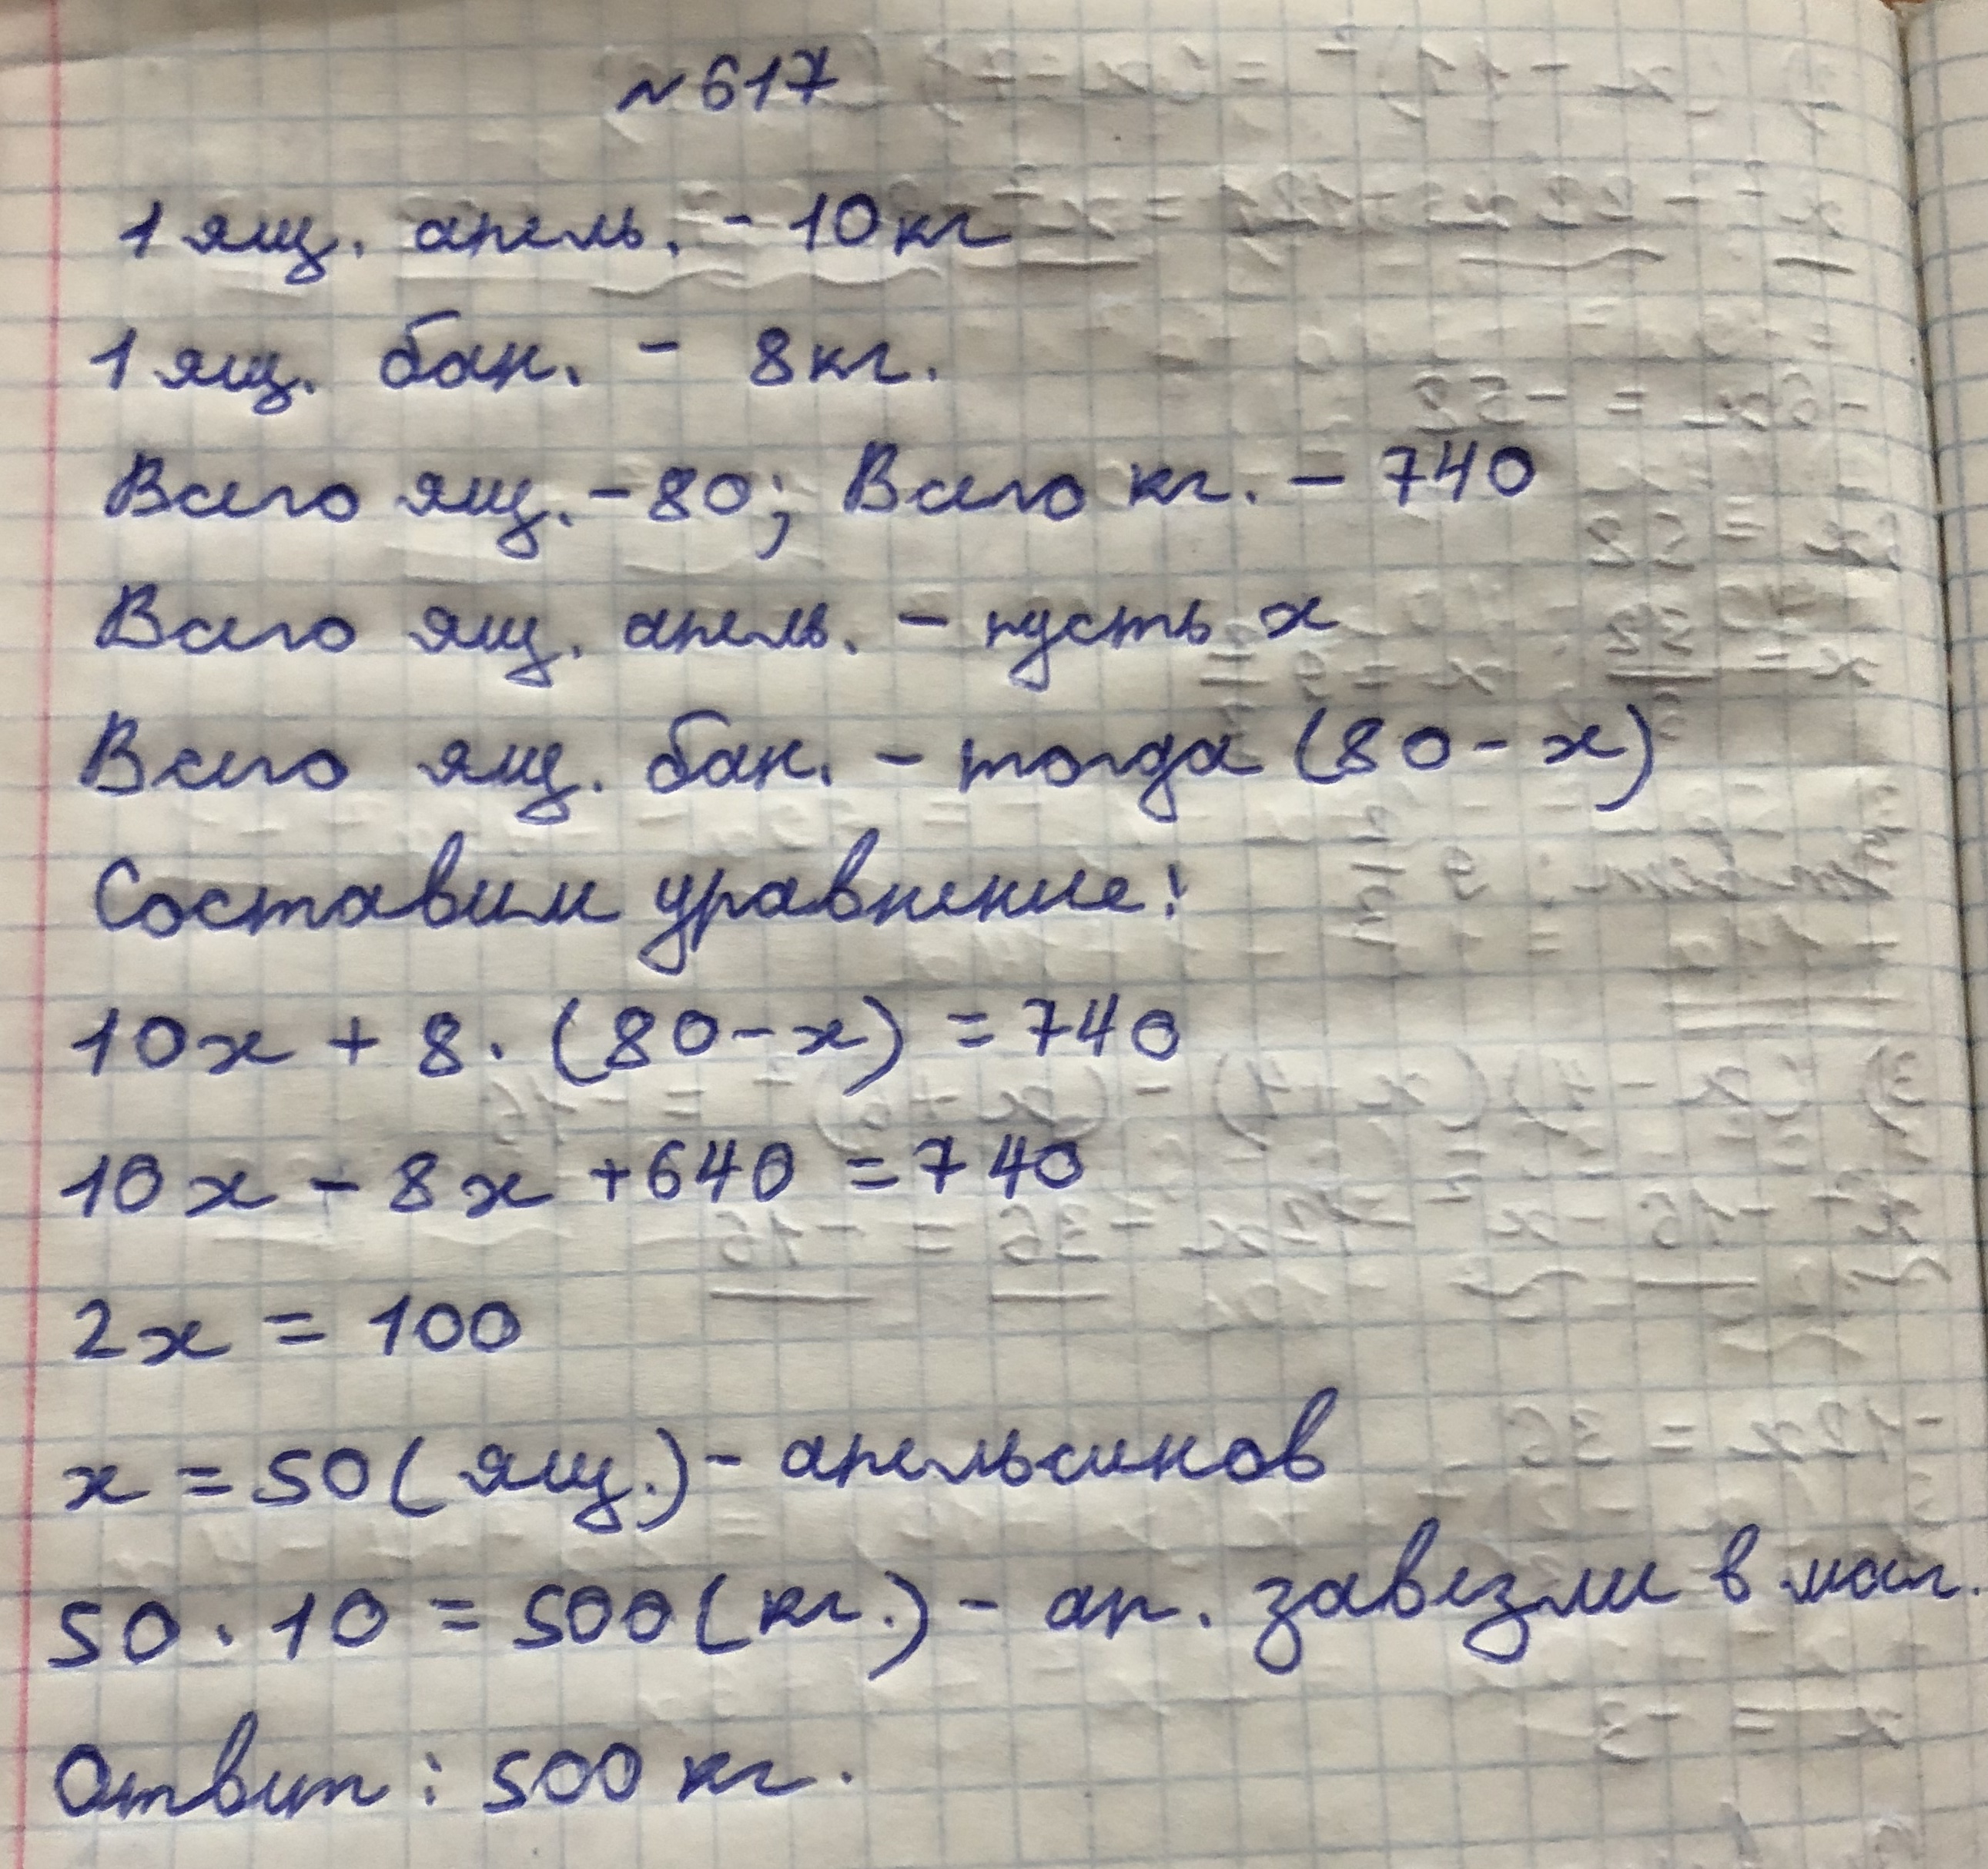 № 617
1 ящ. апель. - 10 кг
1 ящ. бан. - 8 кг.
Всего ящ. - 80; Всего кг. - 740
Всего ящ. апель. - пусть x
Всего ящ. бан. - тогда (80 - x)
Составим уравнение:
10x + 8 · (80 - x) = 740
10x - 8x + 640 = 740
2x = 100
x = 50 (ящ.) - апельсинов
50 · 10 = 500 (кг.) - ап. завезли в маг.
Ответ: 500 кг.